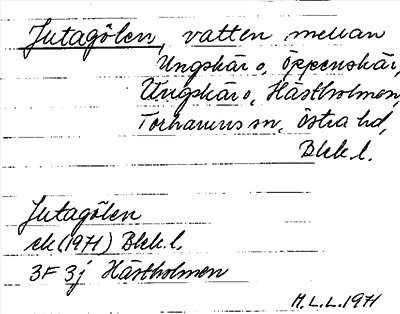 Jutagölen, vatten mellan
Ungskär o, Öppenskär,
Ungskär o, Hästholmen,
Torhamns sn, Östra hd,
Blek. l.
Jutagölen
ek (1971) Blek. l.
3F 3j Hästholmen
H.L.L. 1971